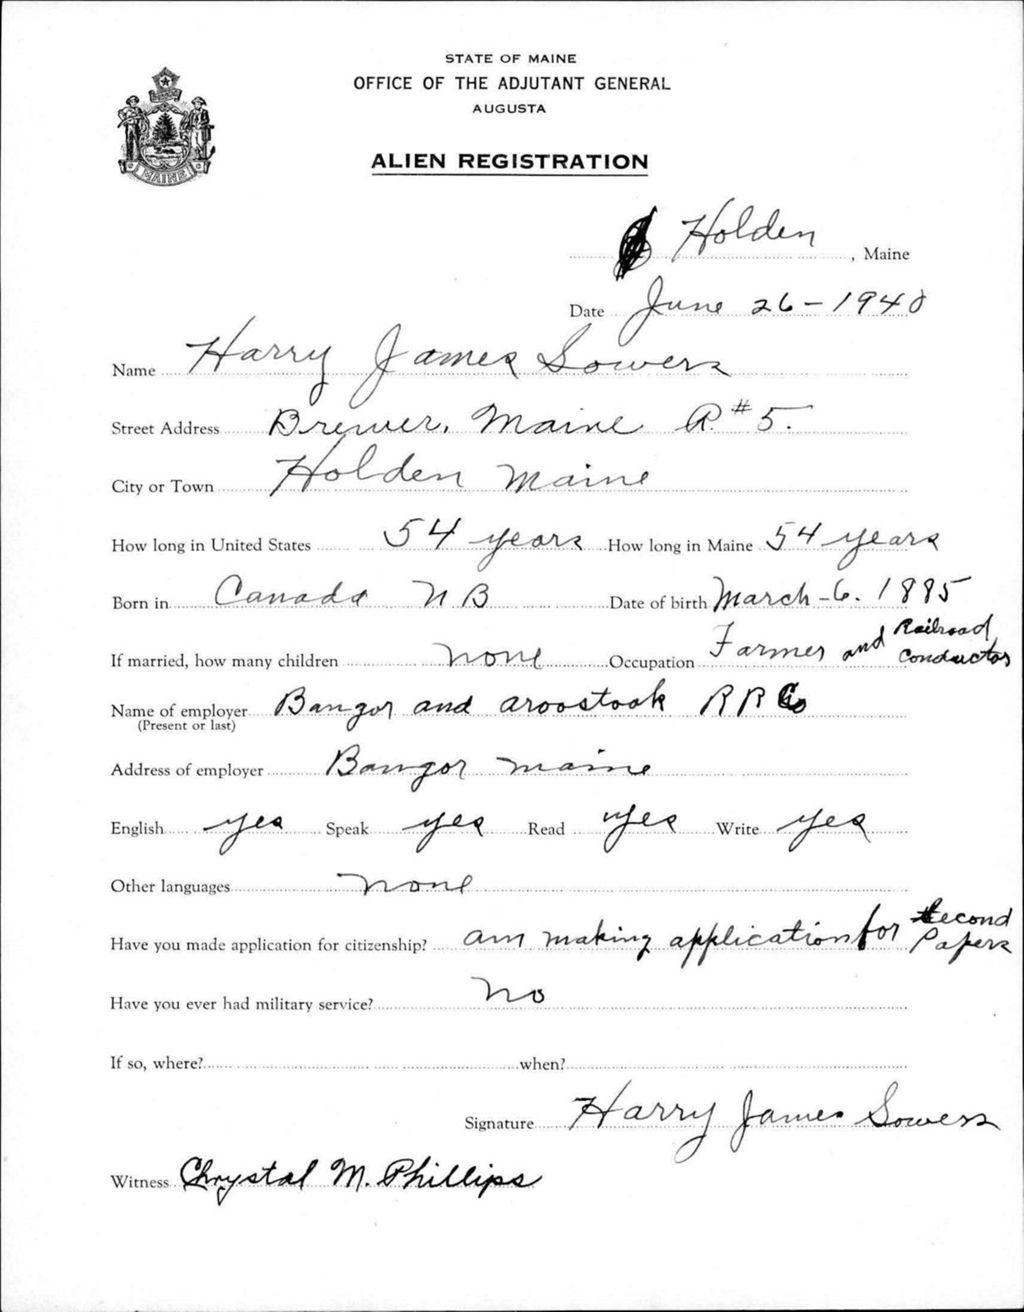 STATE OF MAINE
OFFICE OF THE ADJUTANT GENERAL
AUGUSTA
ALIEN REGISTRATION
MAINE
Holden, Maine
Date June 26-1940
Name Harry James Sowers
Street Address Brewer, Maine R. #5.
City or Town Holden Maine
How long in United States 54 years How long in Maine 54 years
Born in Canada N B Date of birth March-6. 1885
If married, how many children none Occupation Farmer and Railroad Conductor
Name of employer Bangor and aroostook R R Co
(Present or last)
Address of employer Bangor maine
English yes Speak yes Read yes Write yes
Other languages none
Have you made application for citizenship? am making application for Second Papers
Have you ever had military service? No
If so, where? when?
Signature Harry James Sowers
Witness Chrystal M. Phillips